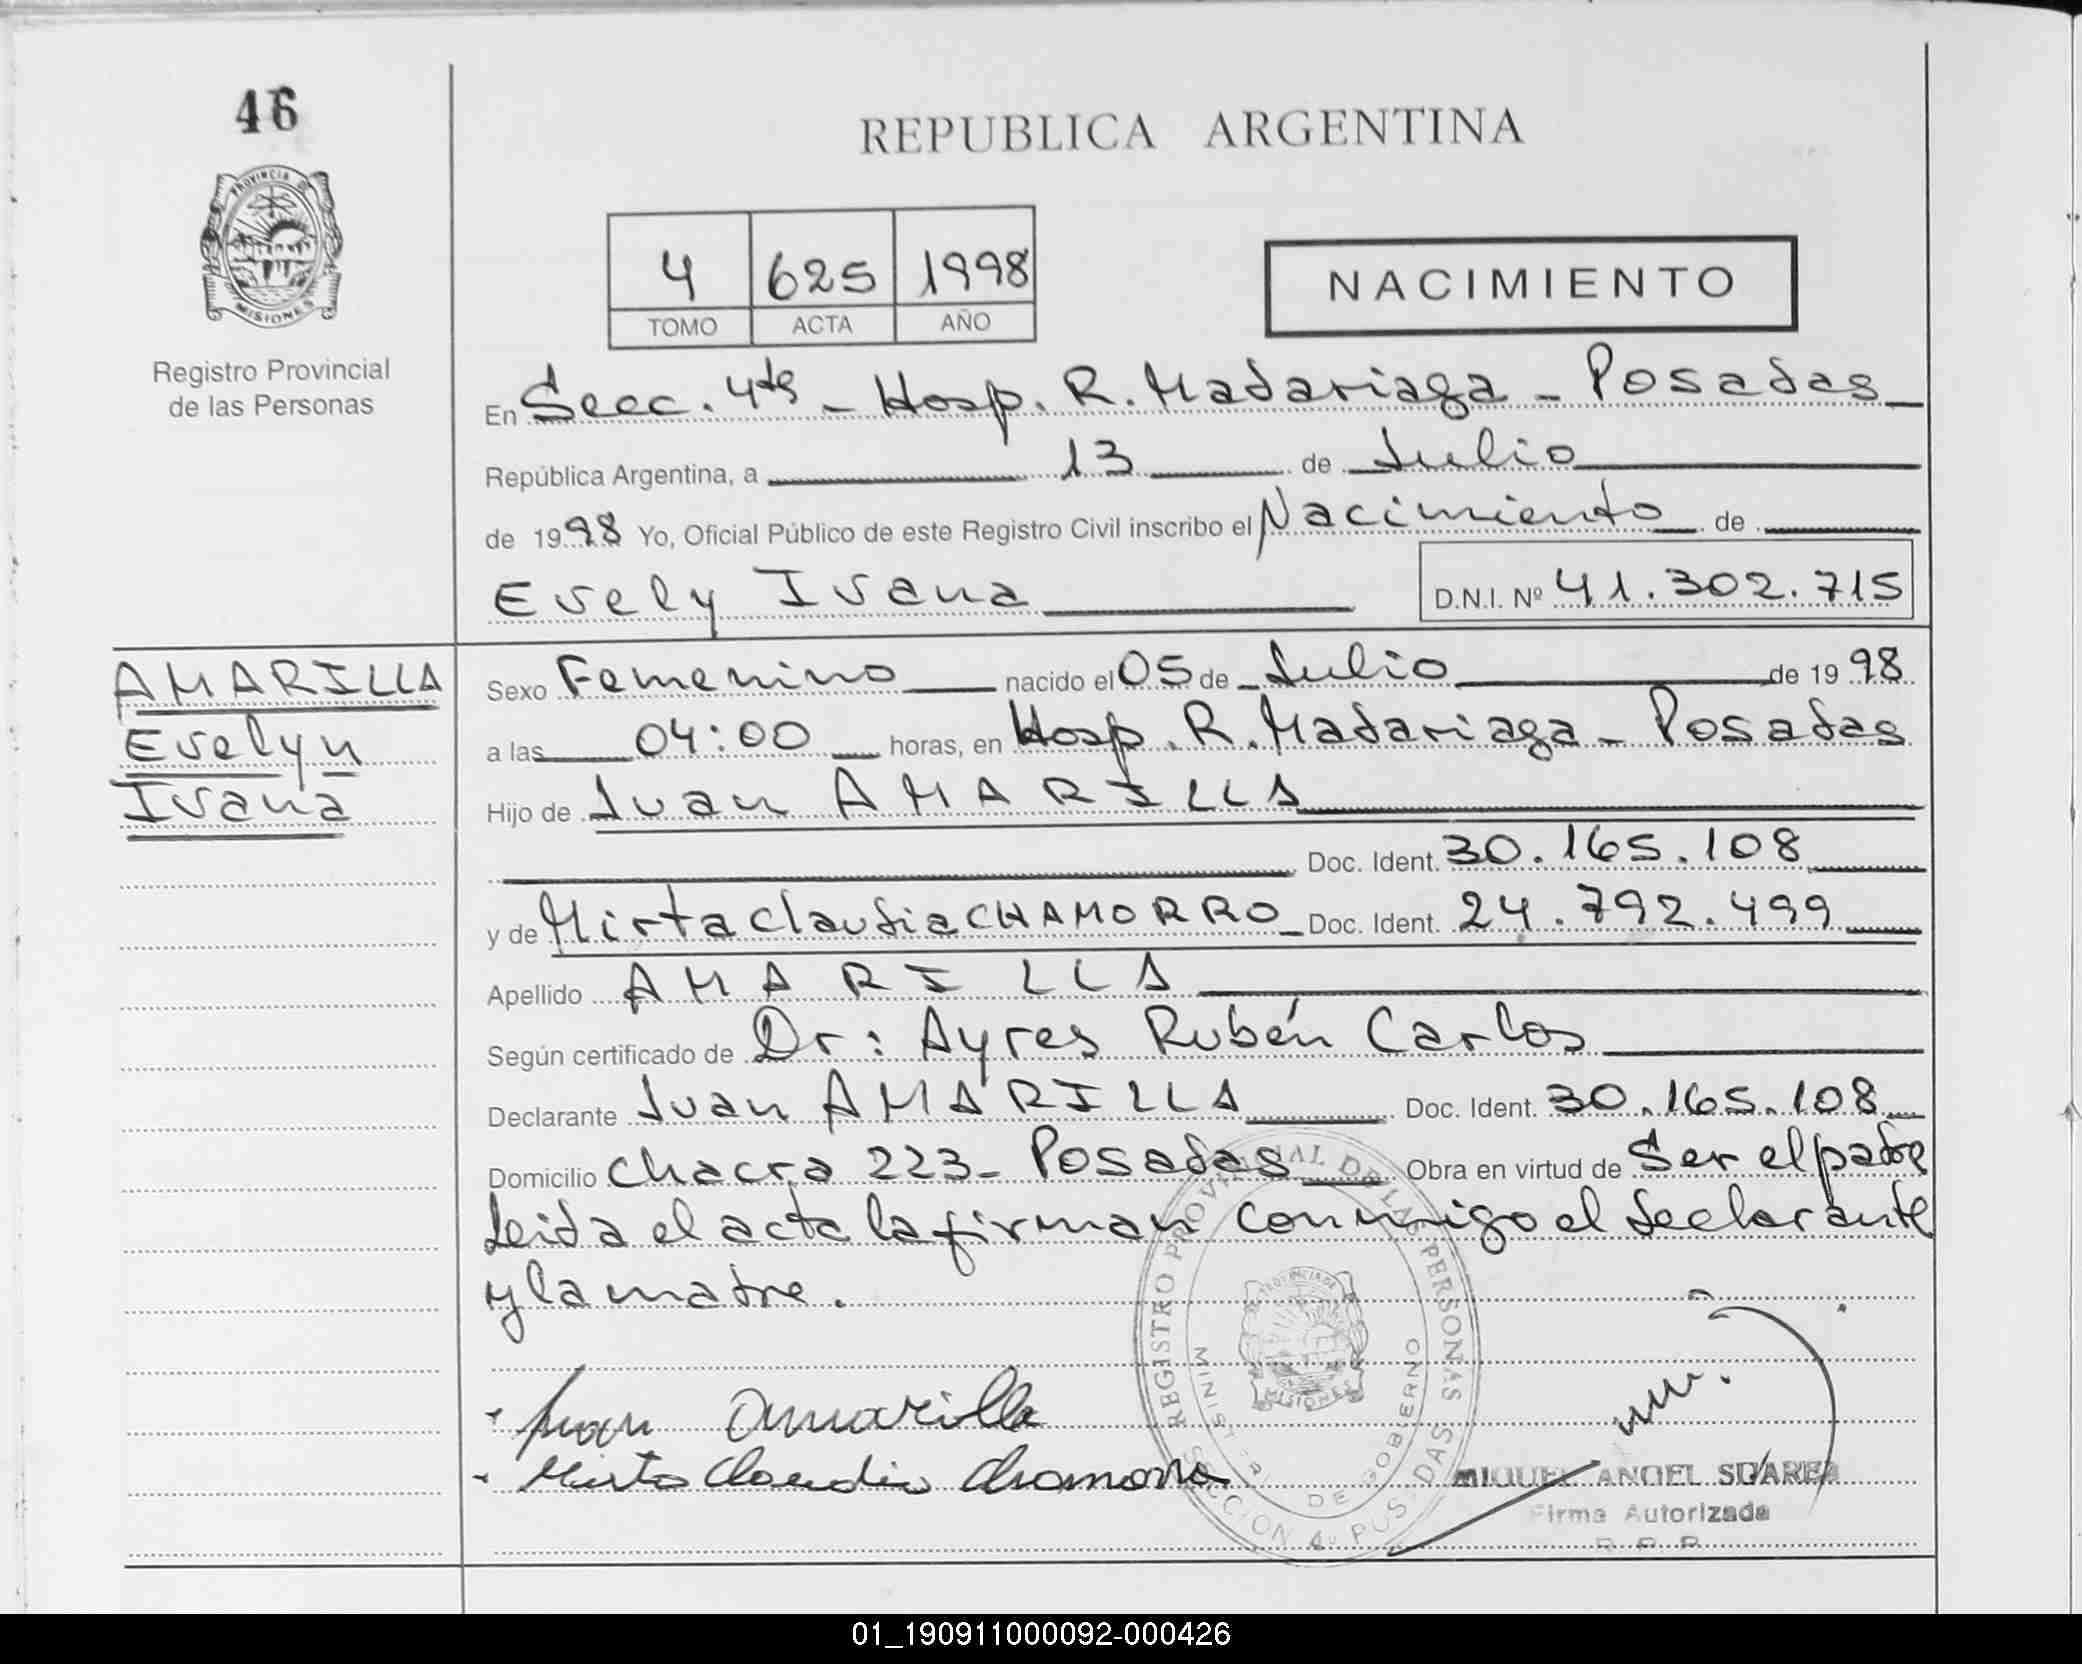 46
REPUBLICA ARGENTINA
PROVINCIA DE
MISIONES
Registro Provincial
de las Personas
4 625 1998
TOMO ACTA AÑO
NACIMIENTO
En Secc. 4ta - Hosp. R. Madariaga - Posadas
República Argentina, a 13 de Julio
de 1998 Yo, Oficial Público de este Registro Civil inscribo el Nacimiento de
Evely Ivana D.N.I. Nº 41.302.715
AMARILLA
Evelyn
Ivana
Sexo Femenino nacido el 05 de Julio de 1998
a las 04:00 horas, en Hosp. R. Madariaga - Posadas
Hijo de Juan AMARILLA
Doc. Ident. 30.165.108
y de Mirta Claudia CHAMORRO Doc. Ident. 24.792.499
Apellido AMARILLA
Según certificado de Dr: Ayres Rubén Carlos
Declarante Juan AMARILLA Doc. Ident. 30.165.108
Domicilio Chacra 223 - Posadas Obra en virtud de Ser el padre
Leida el acta la firman conmigo el declarante
y la madre.
REGISTRO PROVINCIAL DE LAS PERSONAS
MINIST DE GOBERNO
PROVINCIA DE
MISIONES
SECCION 4ª POSADAS
Juan Amarilla
Mirta Claudia Chamorro
MIGUEL ANGEL SUAREZ
Firma Autorizada
R.P.P.
01_190911000092-000426